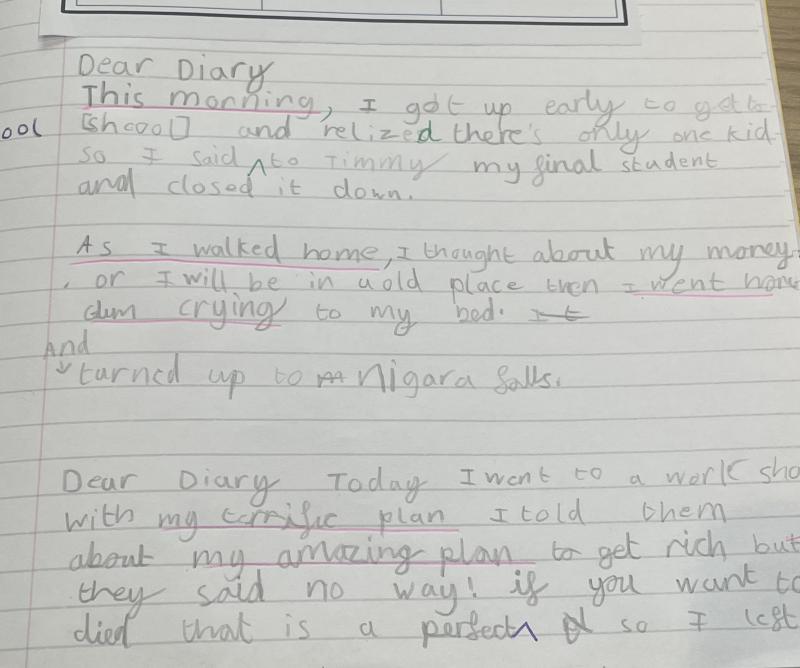 Dear Diary
This morning, I got up early to get to
ool [shcool] and relized there's only one kid
so I said ^ to Timmy my final student
and closed it down.
As I walked home, I thought about my money
. or I will be in a old place then I went home
crying to my bed. It
And
turned up to Nigara falls.
Dear Diary Today I went to a work sho
with my terrific plan I told them
about my amazing plan to get rich but
they said no way! if you want to
died that is a perfect ^ so I left